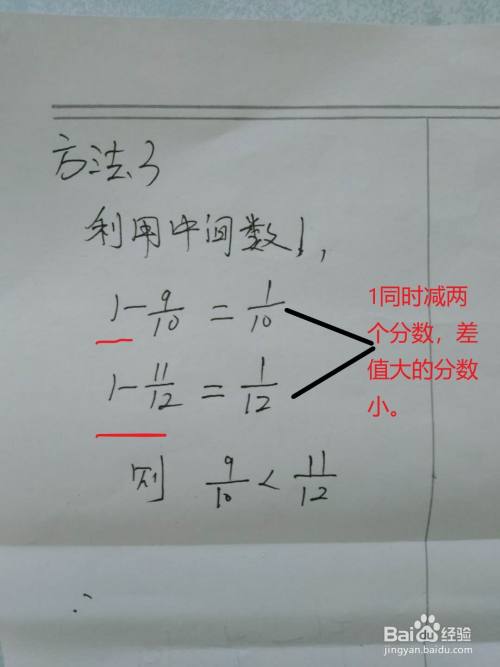 方法3
利用中间数1,
1-9/10=1/10
1-11/12=1/12
则 9/10<11/12
1同时减两
个分数，差
值大的分数
小。
Bai du 经验
jingyan.baidu.com